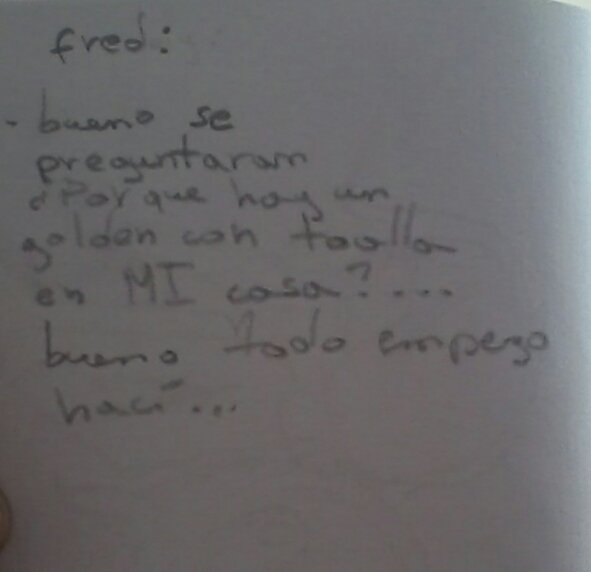 fred:
- bueno se
preguntaram
¿Por que hay un
golden con toalla
en MI casa?....
bueno todo empezo
hací...